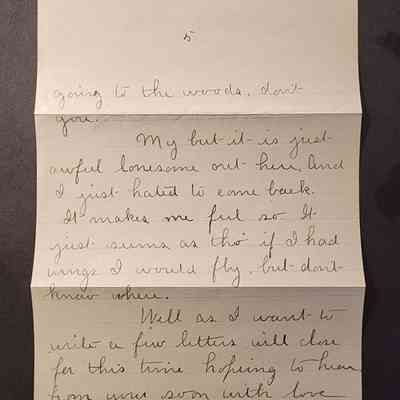 5
going to the woods. don't
you.
My but it is just
awful lonesome out here, And
I just hated to come back.
It makes me feel so It
just seems as tho' if I had
wings I would fly, but don't
know where.
Well as I want to
write a few letters will close
for this time hoping to hear
from you soon with love